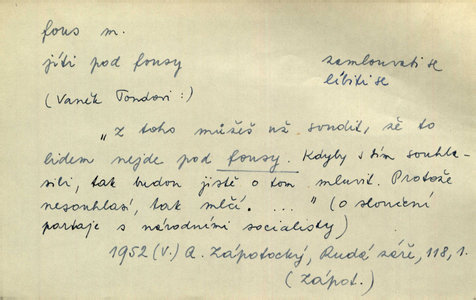 fous m.
jíti pod fousy
zamlouvati se
líbiti se
(Vaněk Tondovi:)
„Z toho můžeš už soudit, že to
lidem nejde pod fousy. Kdyby s tím souhla-
sili, tak budou jistě o tom mluvit. Protože
nesouhlasí, tak mlčí. ..." (o sloučení
partaje s národními socialisty)
1952 (V.) A. Zápotocký, Rudá záře, 118, 1.
(Zápot.)